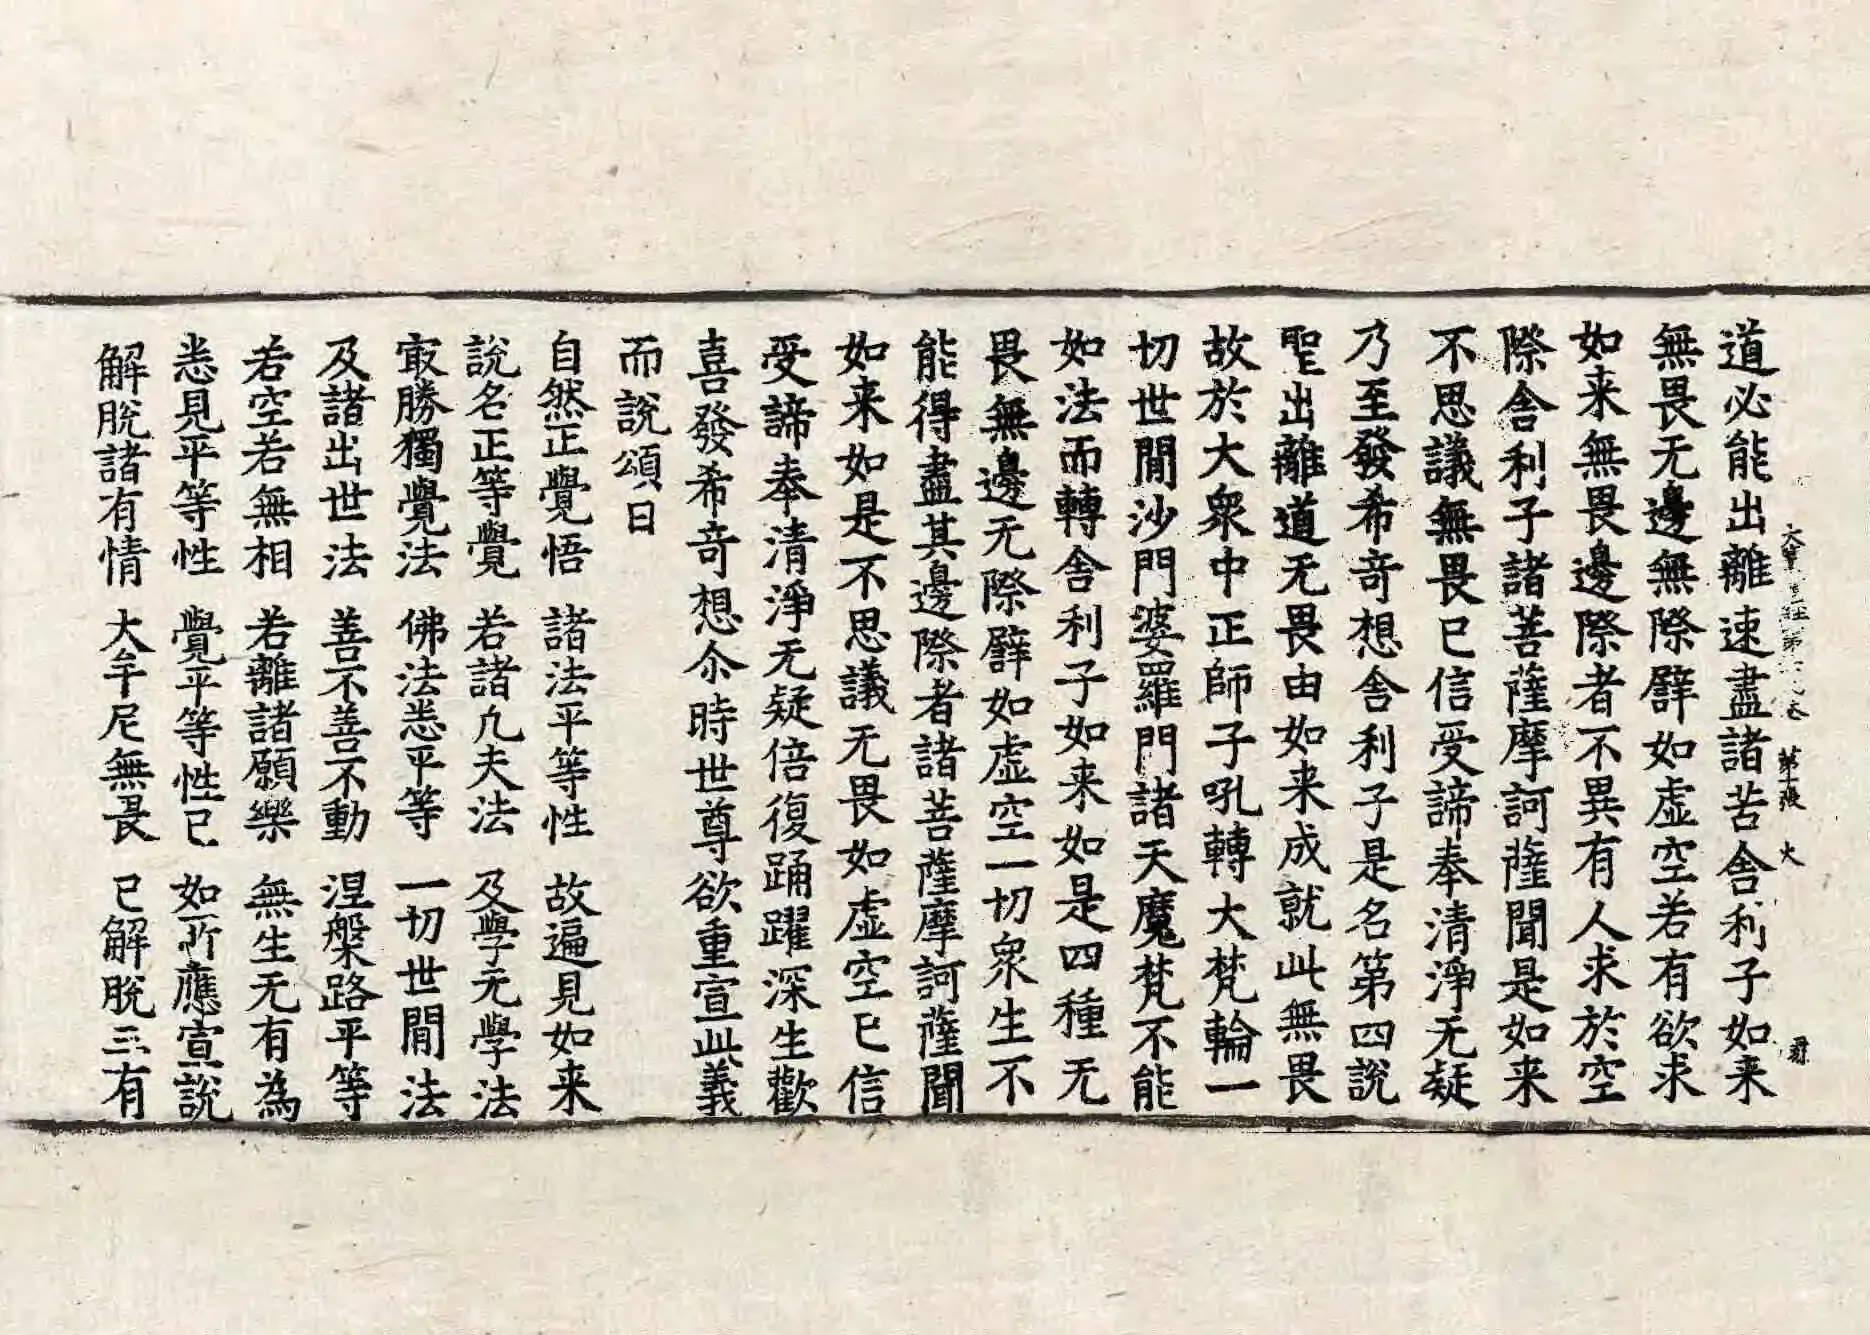 道必能出離速盡諸苦舍利子如来
無畏无邊無際譬如虛空若有欲求
如来無畏邊際者不異有人求於空
際舍利子諸菩薩摩訶薩聞是如来
不思議無畏已信受諦奉清淨无疑
乃至發希竒想舍利子是名第四說
聖出離道无畏由如来成就此無畏
故於大衆中正師子吼轉大梵輪一
切世閒沙門婆羅門諸天魔梵不能
如法而轉舍利子如来如是四種无
畏無邊无際譬如虛空一切衆生不
能得盡其邊際者諸菩薩摩訶薩聞
如来如是不思議无畏如虛空已信
受諦奉清淨无疑倍復踊躍深生歡
喜發希竒想尒時世尊欲重宣此義
而說頌曰
自然正覺悟 諸法平等性 故遍見如来
說名正等覺 若諸凡夫法 及學无學法
㝡勝獨覺法 佛法悉平等 一切世閒法
及諸出世法 善不善不動 涅槃路平等
若空若無相 若離諸願樂 無生无有為
悉見平等性 覺平等性已 如所應宣說
解脫諸有情 大牟尼無畏 已解脫三有